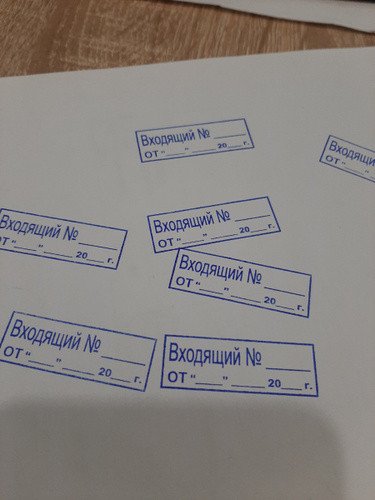 Входящий № ______
ОТ “____” _____ 20___ г.
Входящий
ОТ “____”
Входящий № ______
ОТ “____” _____ 20___ г.
Входящий № ______
ОТ “____” _____ 20___ г.
Входящий № ______
ОТ “____” _____ 20___ г.
Входящий № ______
ОТ “____” _____ 20___ г.
Входящий № ______
ОТ “____” _____ 20___ г.